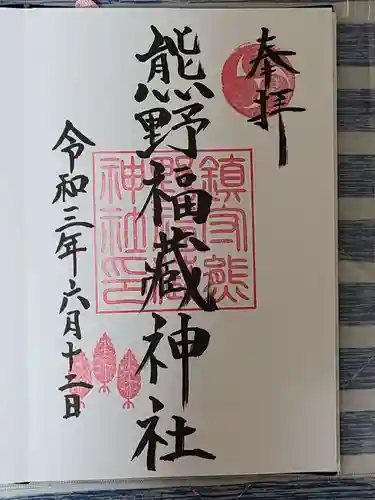 奉拝
熊野福藏神社
令和三年六月十二日
鎮守熊
野福藏
神社印